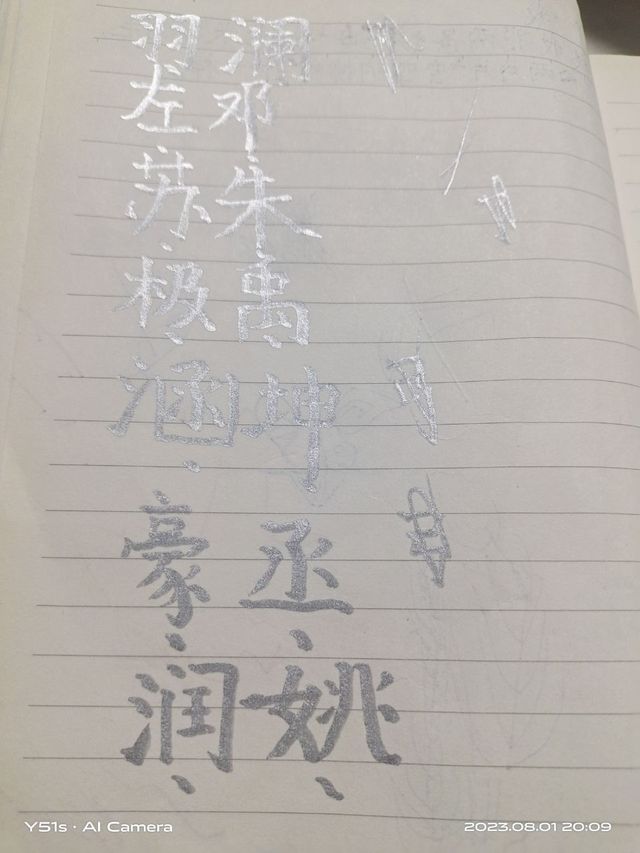 羽 澜
左 邓
苏 朱
极 禹
涵 坤
豪 丞
润 姚
Y51s · AI Camera 2023.08.01 20:09